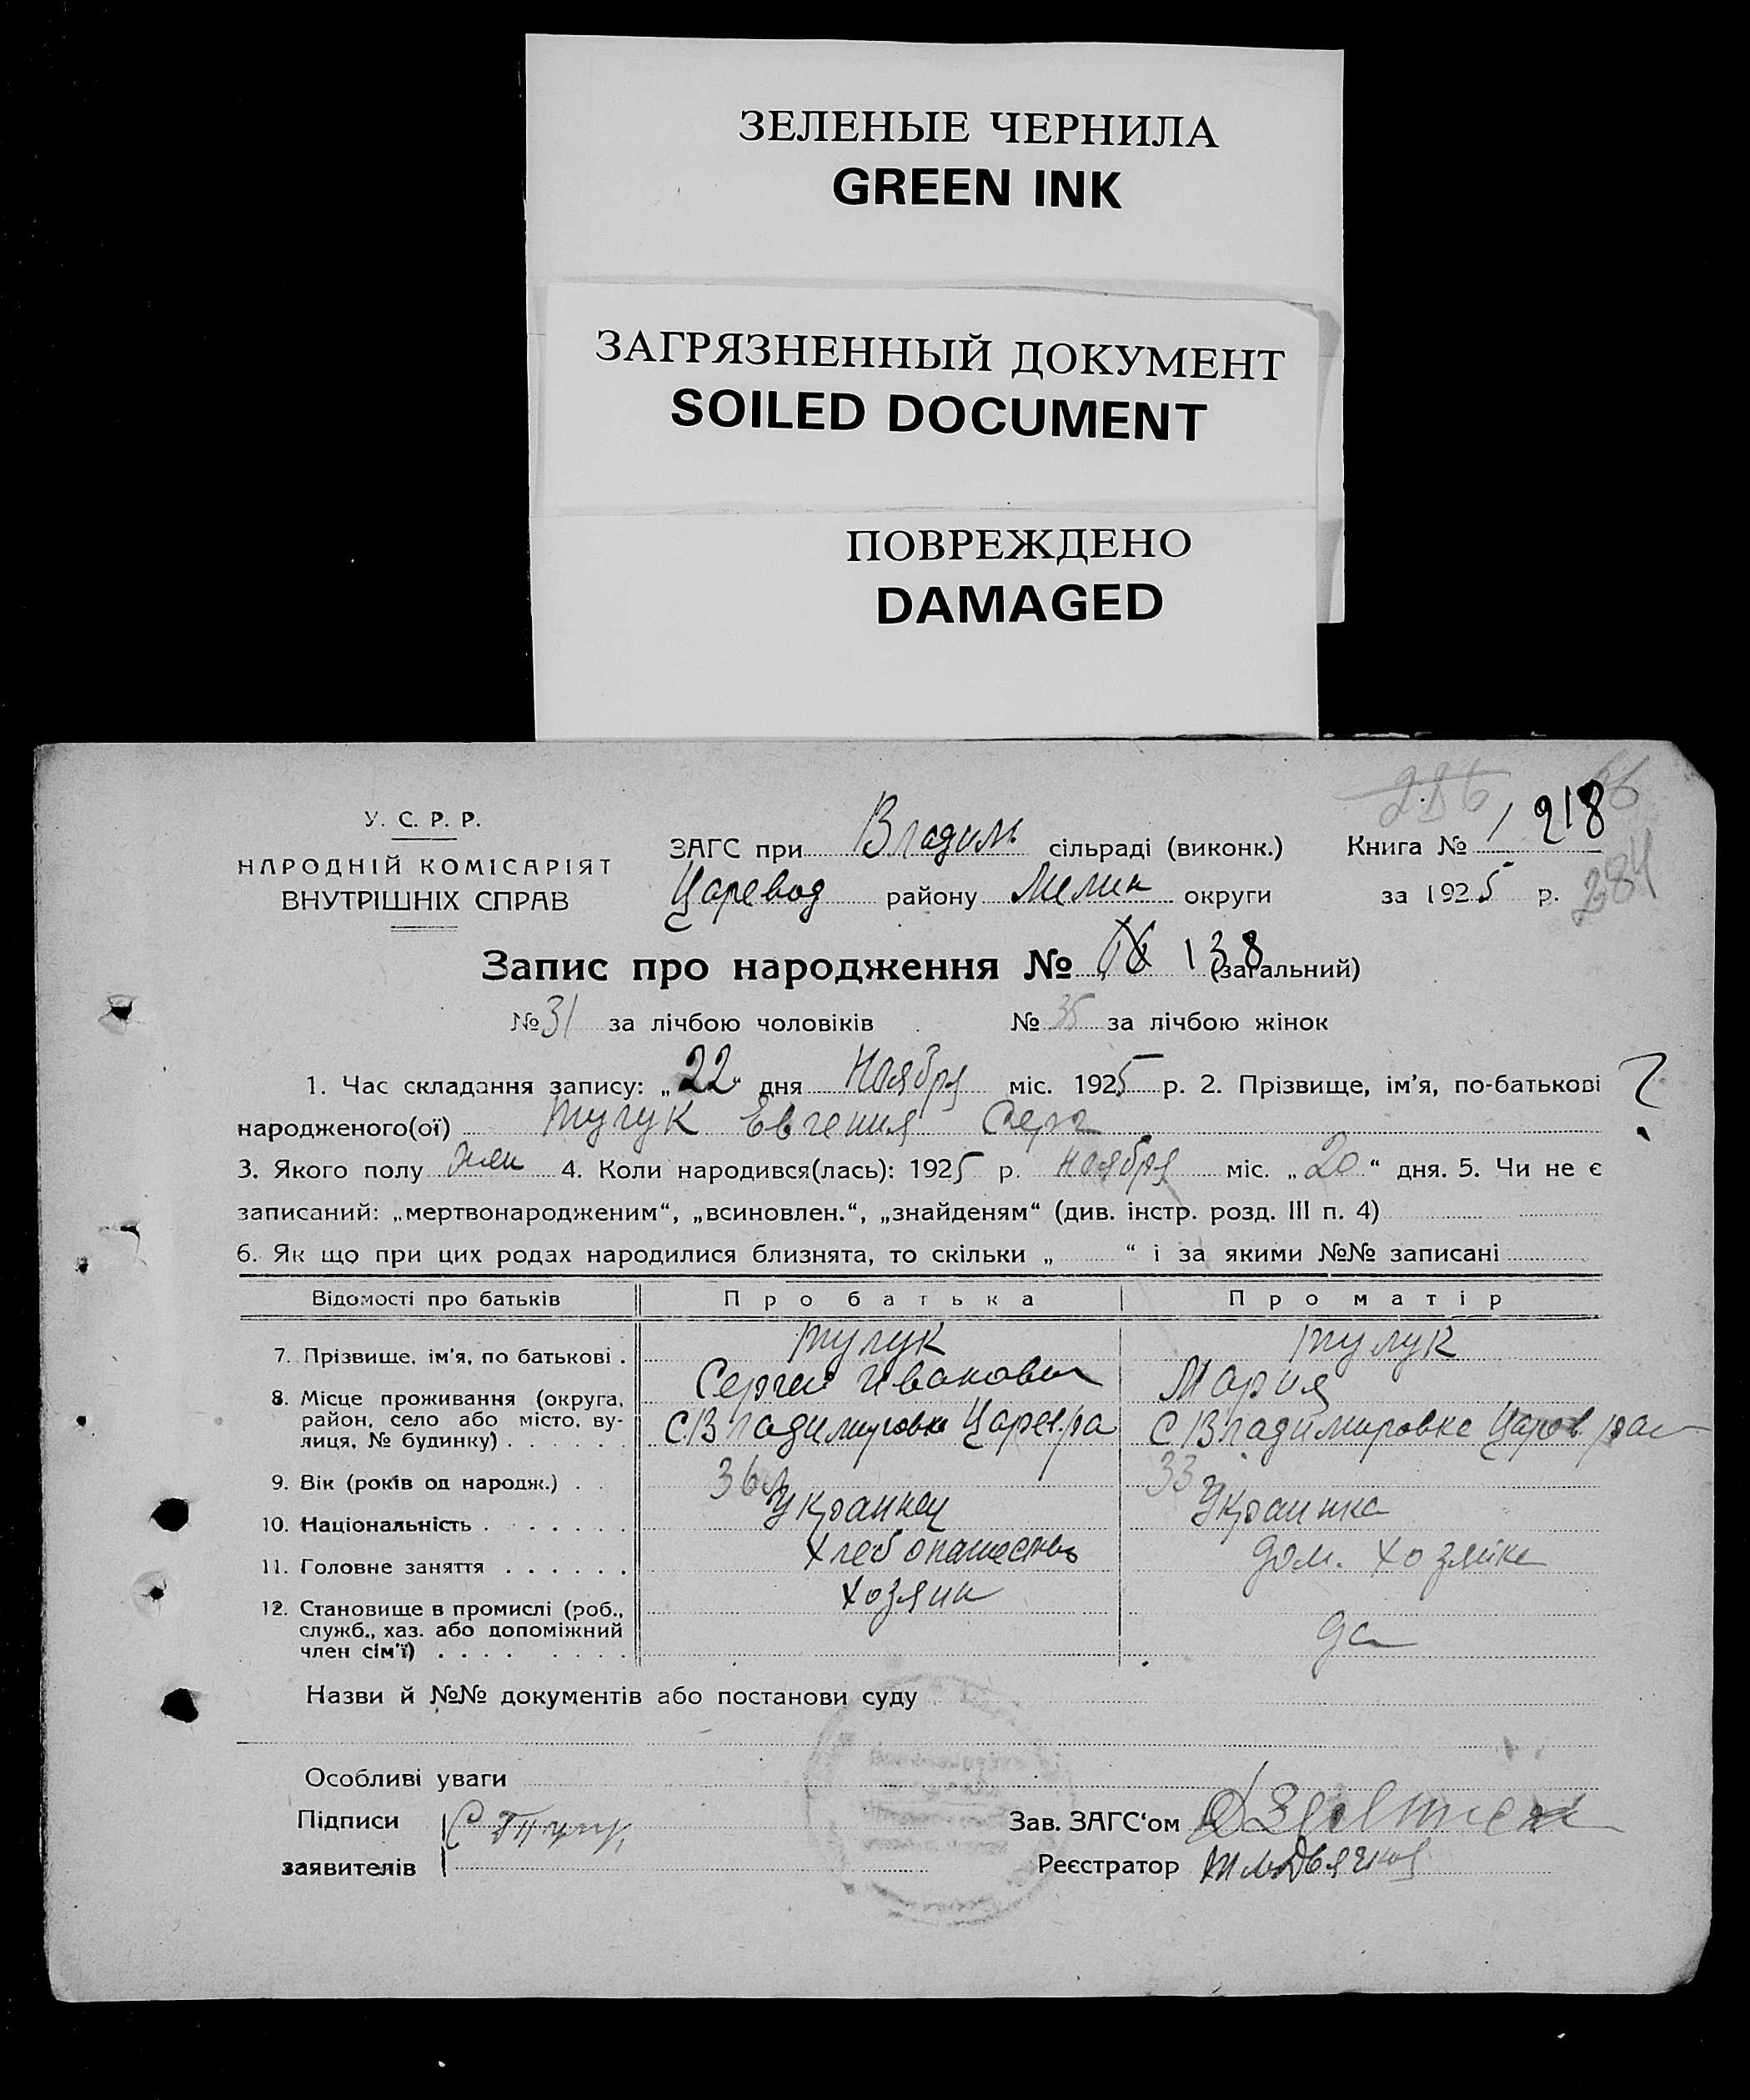 ЗЕЛЕНЫЕ ЧЕРНИЛА
GREEN INK
ЗАГРЯЗНЕННЫЙ ДОКУМЕНТ
SOILED DOCUMENT
ПОВРЕЖДЕНО
DAMAGED
286
У. С. Р. Р.
НАРОДНІЙ КОМІСАРІЯТ
ВНУТРІШНІХ СПРАВ
ЗАГС при Владим сільраді (виконк.) Книга № 1 218
Царевод району Мелит округи за 1925 р. 284
Запис про народження № 138 (загальний)
№ 31 за лічбою чоловіків № 35 за лічбою жінок
1. Час складання запису: „22“ дня Ноября міс. 1925 р. 2. Прізвище, ім’я, по-батькові ?
народженого(ої) Тулук Евгения Серг
3. Якого полу жен 4. Коли народився(лась): 1925 р. ноября міс. „20“ дня. 5. Чи не є
записаний: „мертвонародженим“, „всиновлен.“, „знайденям“ (див. інстр. розд. III п. 4)
6. Як що при цих родах народилися близнята, то скільки „ “ і за якими №№ записані
Відомості про батьків Про батька Про матір
7. Прізвище, ім’я, по батькові . Тулук Тулук
Сергей Иванович Мария
8. Місце проживання (округа, район, село або місто, вулиця, № будинку) . . . . . . С Владимировка Царев.ра С Владимировке Царев ра
9. Вік (років од народж.) . . 36 л 33
10. Національність . . . . . . . Украинец Украинка
11. Головне заняття . . . . . . Хлебопашество дом. хозяйка
12. Становище в промислі (роб., служб., хаз. або допоміжний член сім’ї) . . . . . . . . хозяин да
Назви й №№ документів або постанови суду
Особливі уваги
Підписи С Тулук Зав. ЗАГС‘ом
заявителів Реєстратор